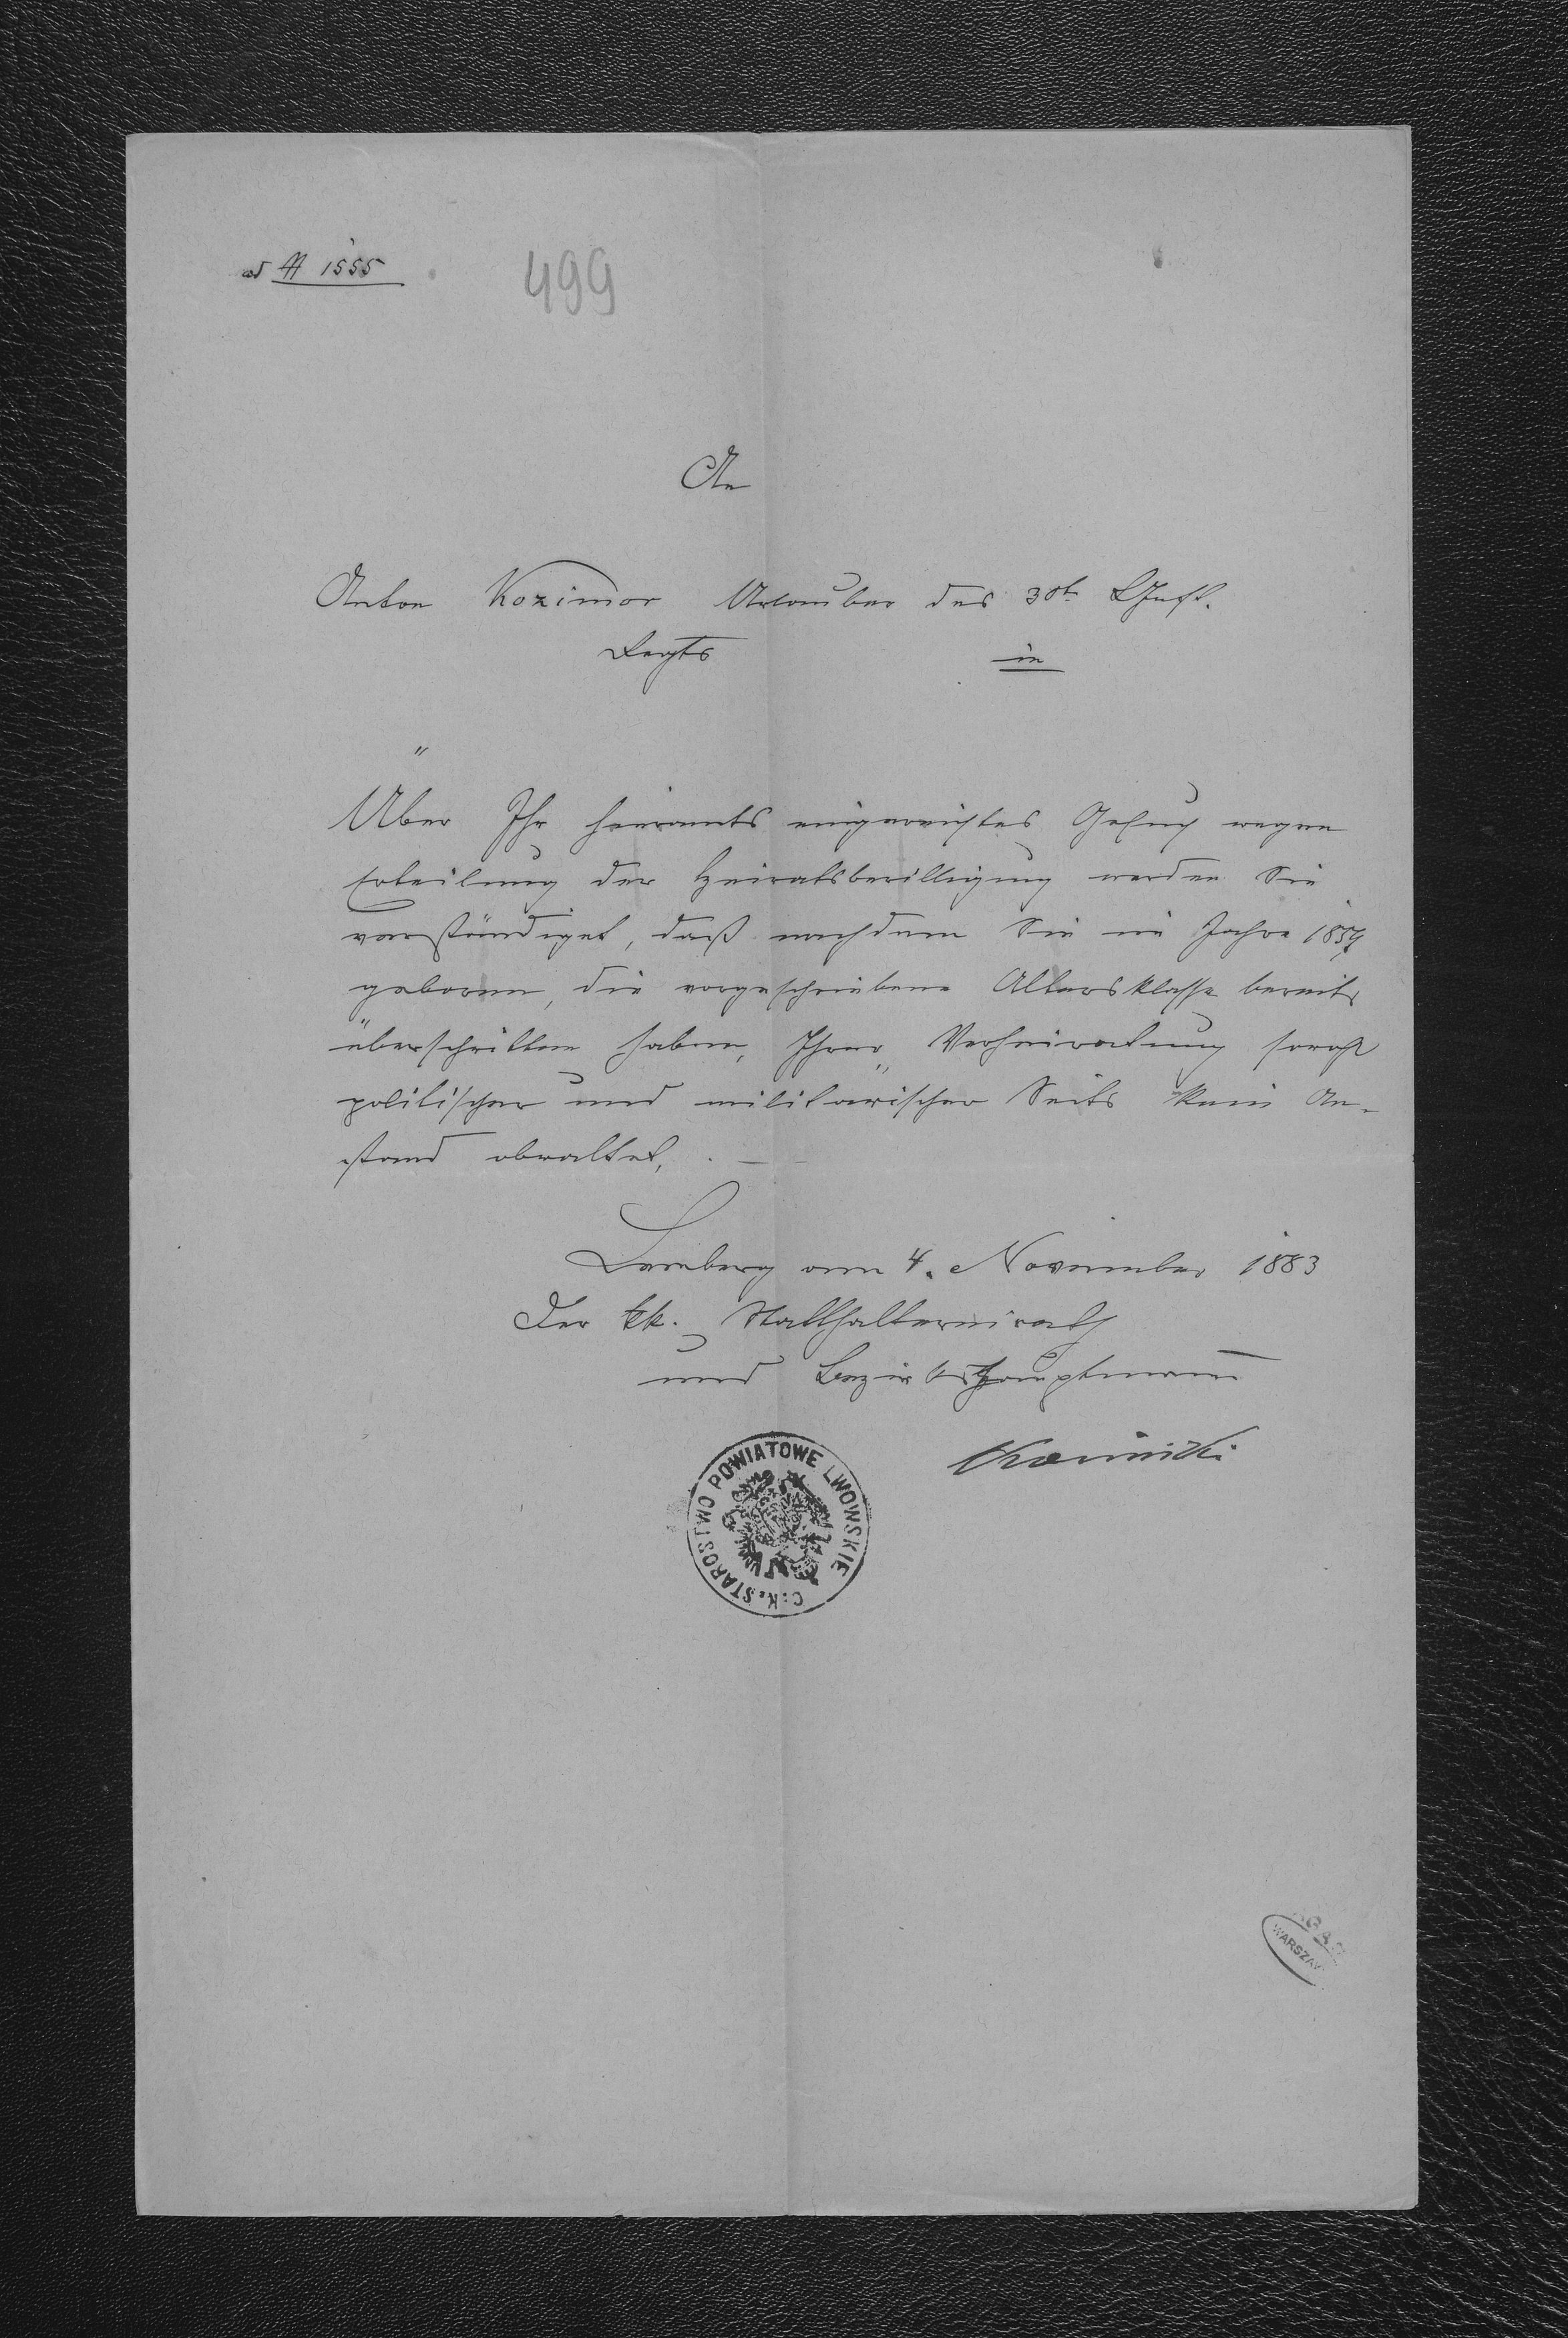 ad H 1555
499
An
Anton Kozimor Urlauber des 30t LInft.
Regts
in
Über Ihr hieramts eingereichtes Gesuch wegen
Erteilung der Heiratsbewilligung werden Sie
verständiget, daß nachdem Sie im Jahre 1857
geboren, die vorgeschriebene Altersklasse bereits
überschritten haben, Ihrer Verheiratung
politischer und militärischer Seits kein An-
stand obwaltet.
Lemberg am 4. November 1883
Der kk. Statthaltereirath
und Bezirkshauptmann
C.K. STAROSTWO POWIATOWE LWOWSKIE
AGAD
WARSZAWA